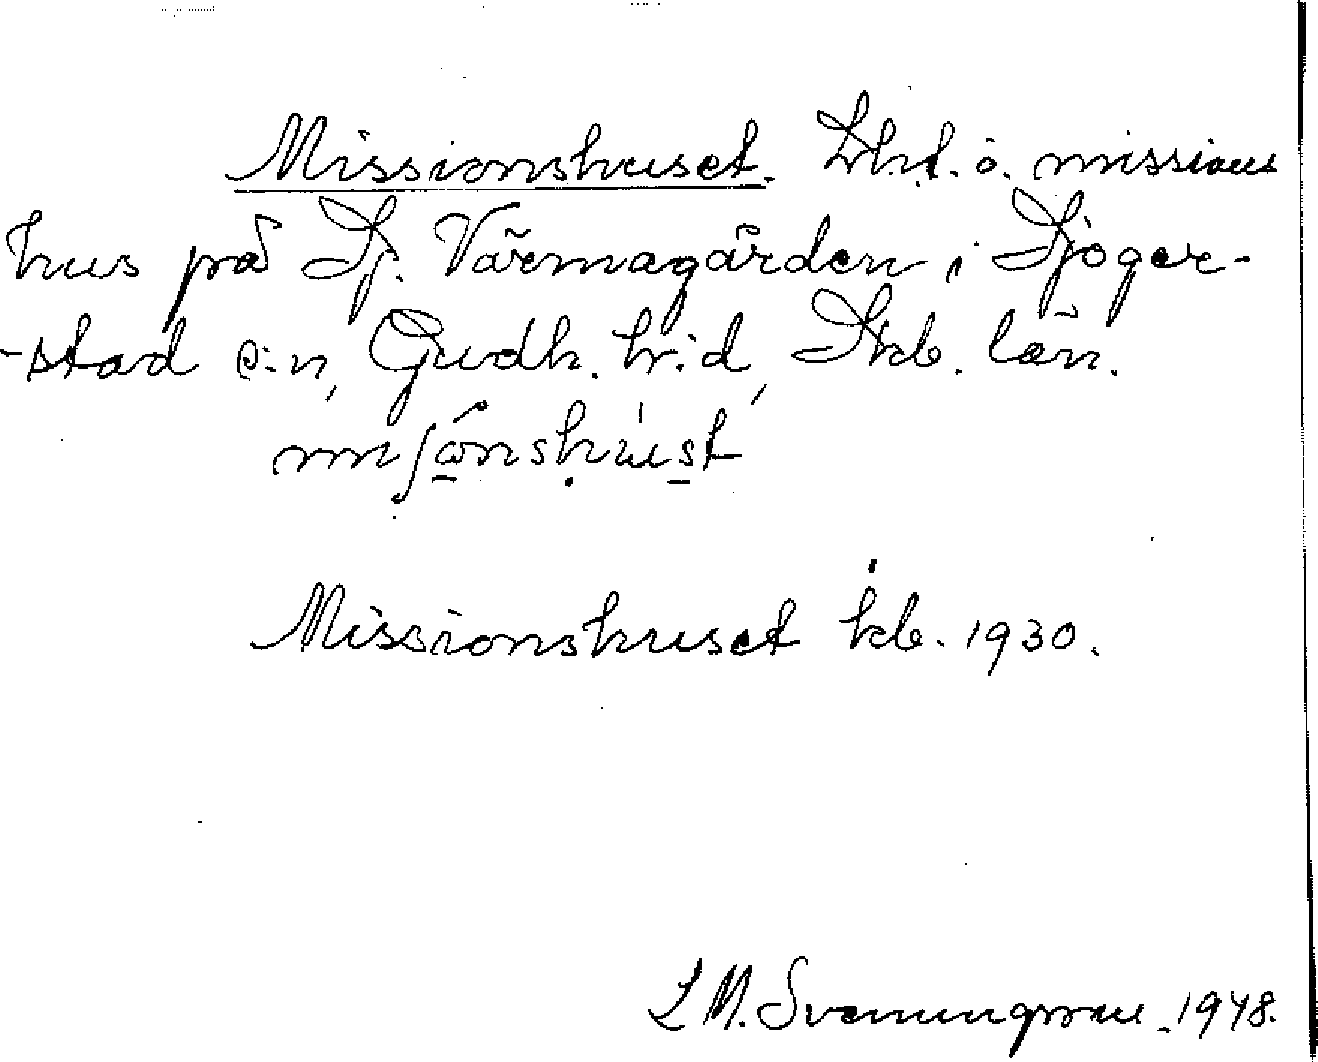 Missionshuset. Lht. o. missions
hus på Sj. Värmagården i Sjöger-
-stad s:n, Gudh. h:d, Skb. län.
Missionshuset kb. 1930.
L M. Svenungsson. 1948.